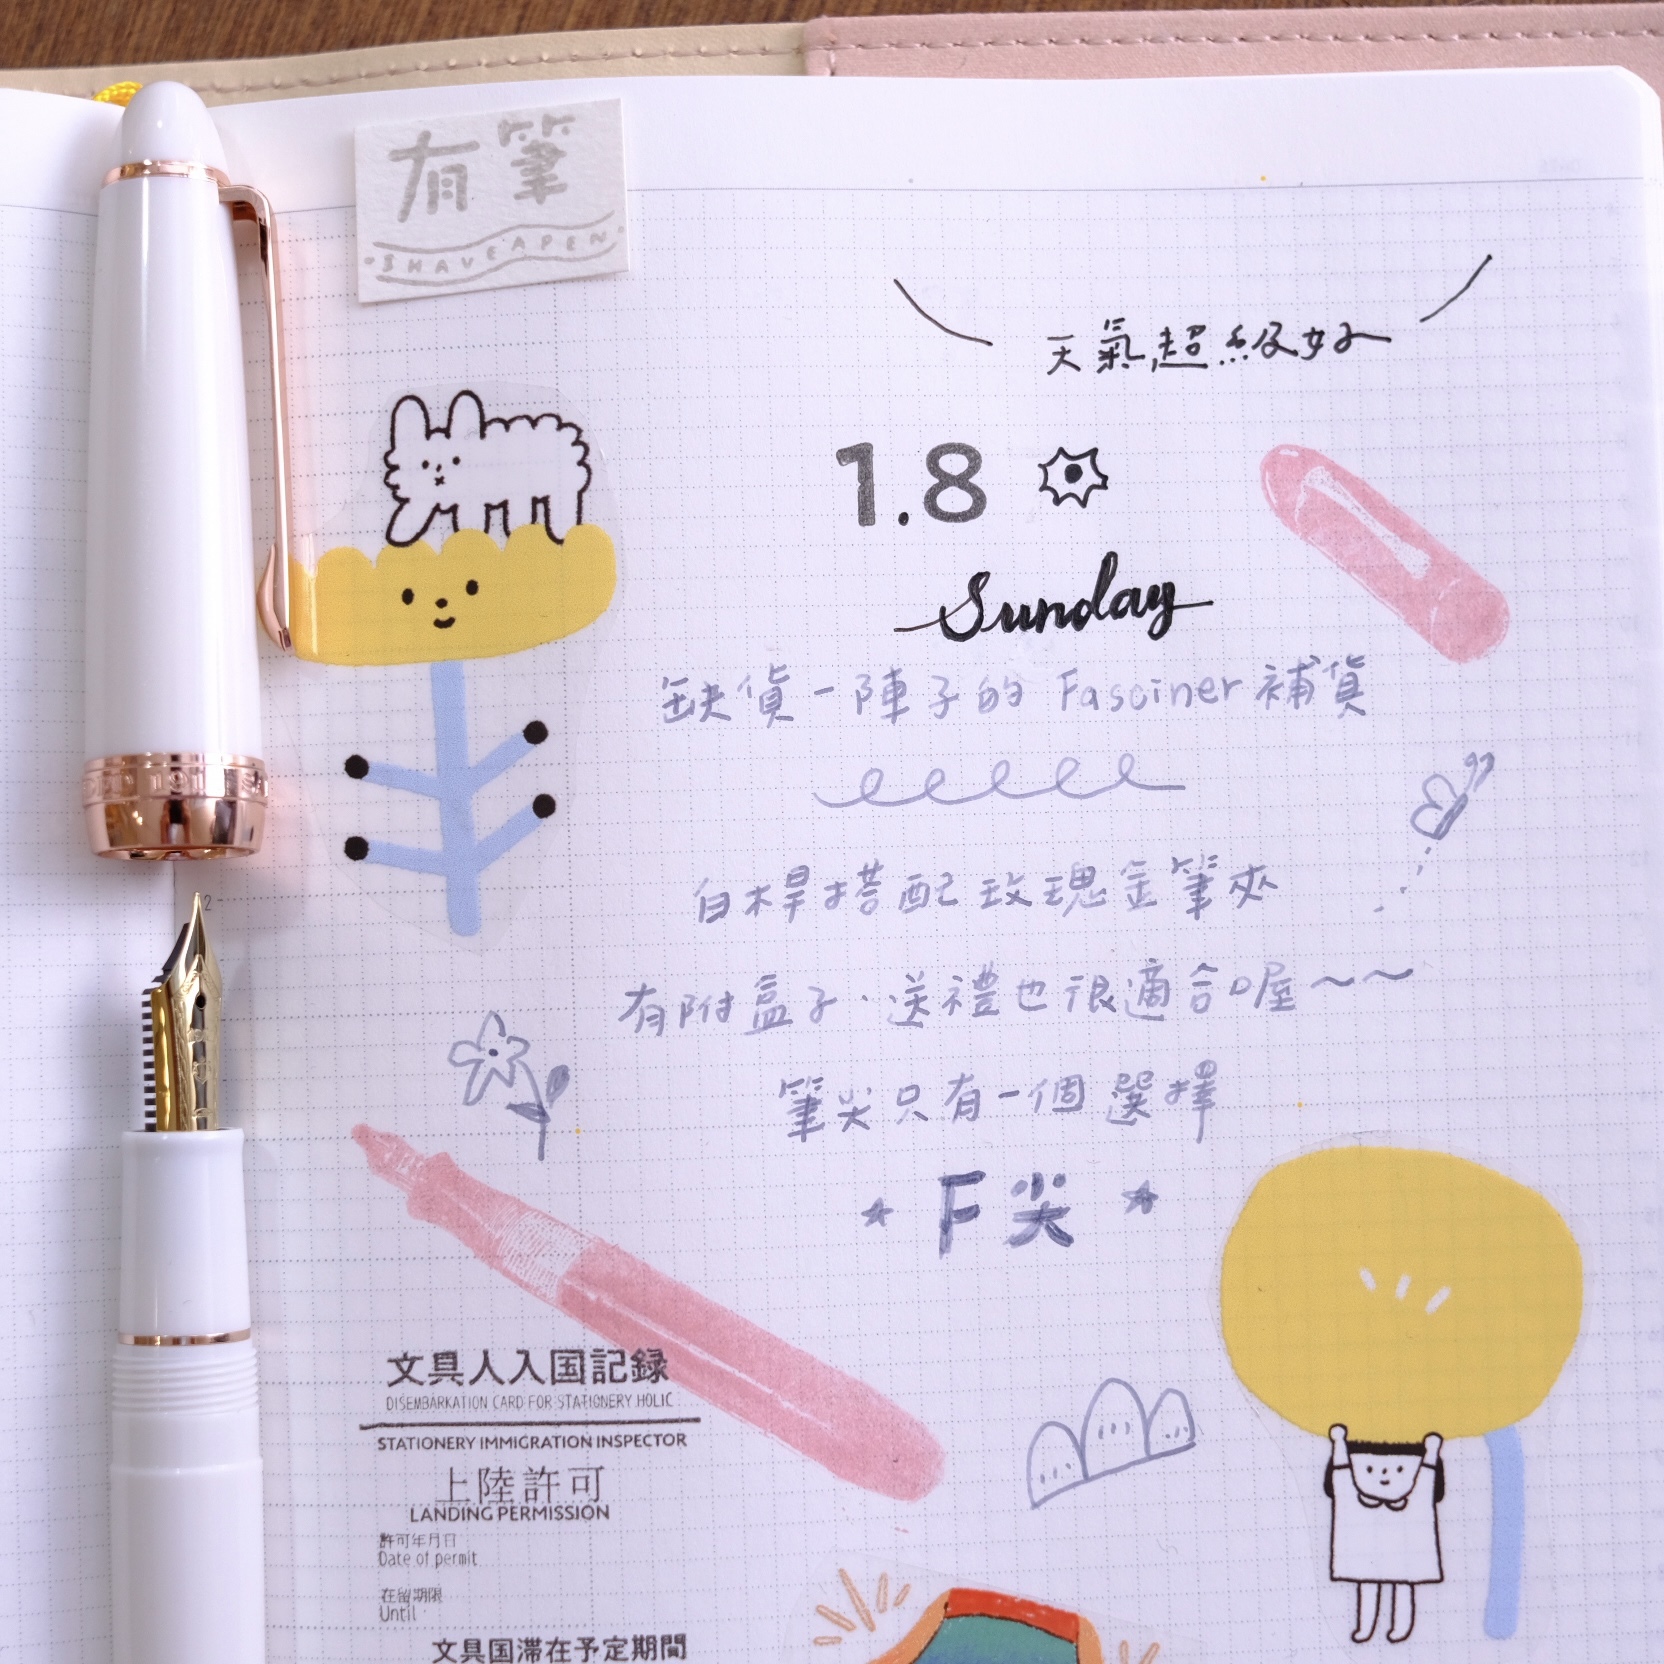 有筆
I HAVE A PEN
天氣超級好
1.8
Sunday
缺貨一陣子的 Fasciner 補貨
白桿搭配玫瑰金筆夾
有附盒子，送禮也很適合喔～～
筆尖只有一個選擇
F尖
文具人入国記録
DISEMBARKATION CARD FOR STATIONERY HOLIC
STATIONERY IMMIGRATION INSPECTOR
上陸許可
LANDING PERMISSION
許可年月日
Date of permit
在留期限
Until
文具国滞在予定期間